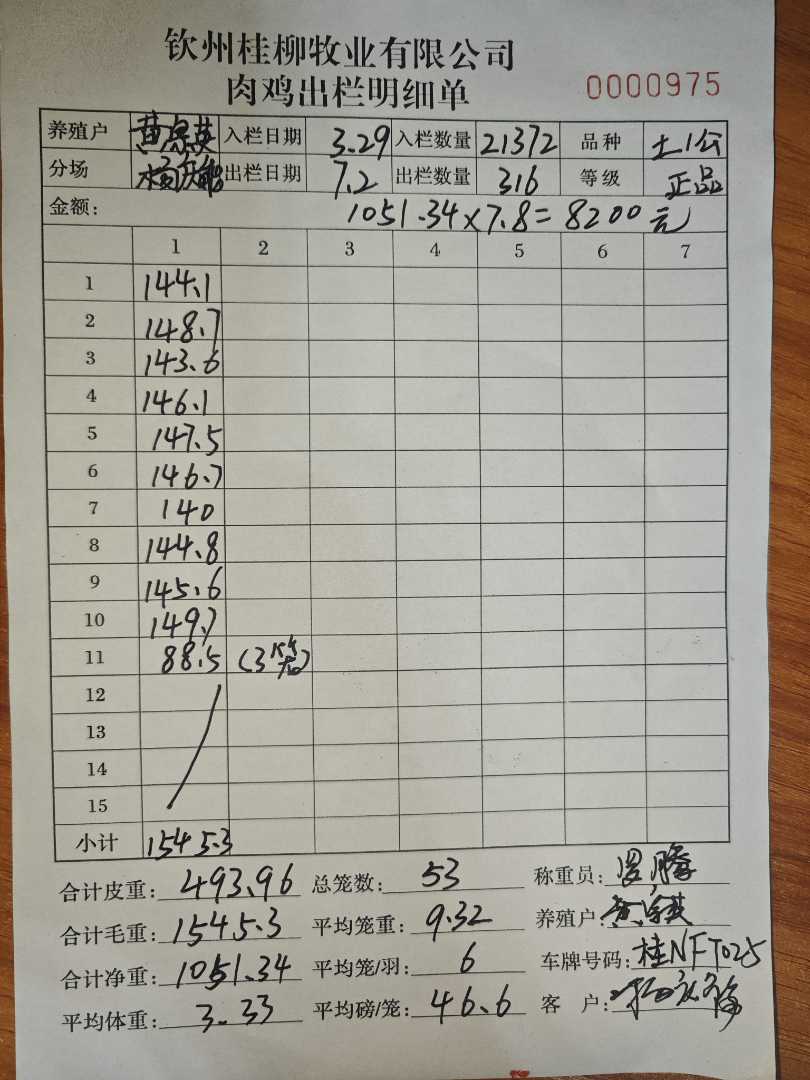 钦州桂柳牧业有限公司
肉鸡出栏明细单 0000975
养殖户 入栏日期 3.29 入栏数量 21372 品种 土1公
分场 出栏日期 7.2 出栏数量 316 等级 正品
金额: 1051.34×7.8=8200元
1 2 3 4 5 6 7
1 144.1
2 148.7
3 143.6
4 146.1
5 147.5
6 146.7
7 140
8 144.8
9 145.6
10 149.7
11 88.5 (3笼)
12
13
14
15
小计 1545.3
合计皮重: 493.96 总笼数: 53 称重员:
合计毛重: 1545.3 平均笼重: 9.32 养殖户:
合计净重: 1051.34 平均笼/羽: 6 车牌号码: 桂NFT025
平均体重: 3.33 平均磅/笼: 46.6 客 户: